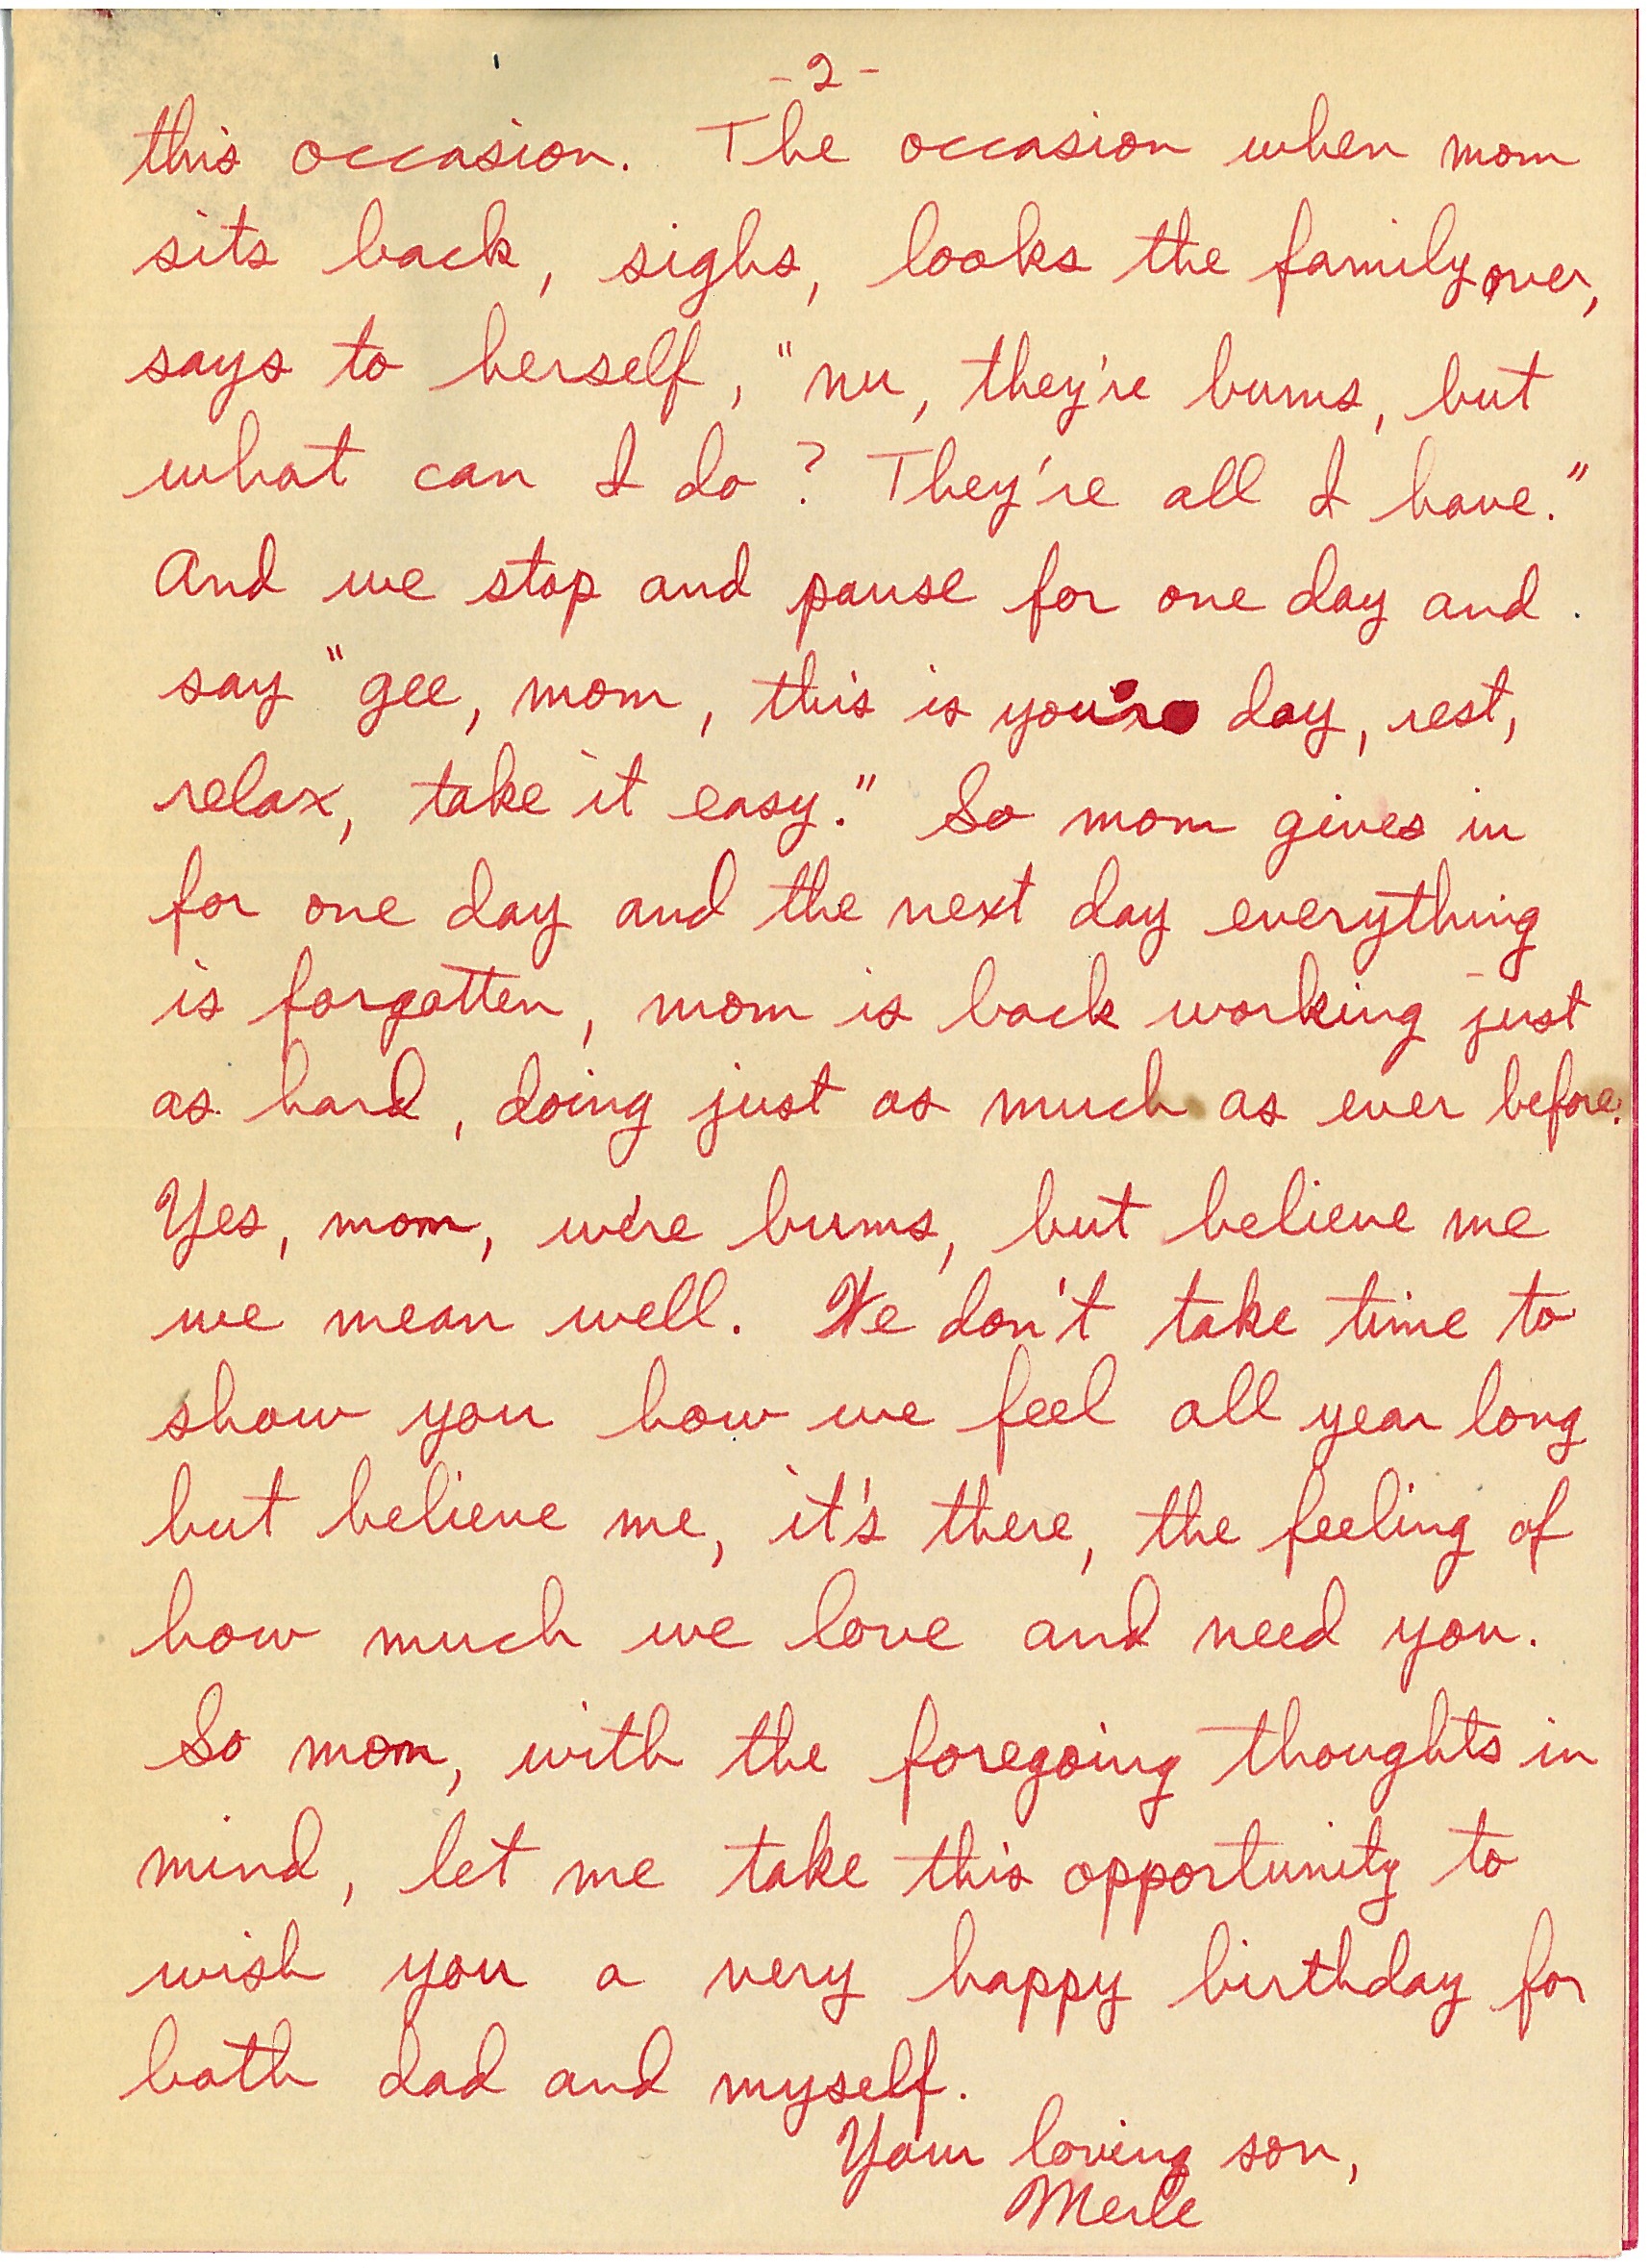 -2-
this occasion. The occasion when mom
sits back, sighs, looks the family over,
says to herself, "nu, they're bums, but
what can I do? They're all I have."
And we stop and pause for one day and
say "gee, mom, this is your day, rest,
relax, take it easy." So mom gives in
for one day and the next day everything
is forgotten, mom is back working just
as hard, doing just as much as ever before.
Yes, mom, we're bums, but believe me
we mean well. We don't take time to
show you how we feel all year long
but believe me, it's there, the feeling of
how much we love and need you.
So mom, with the foregoing thoughts in
mind, let me take this opportunity to
wish you a very happy birthday for
both dad and myself.
Your loving son,
Merle